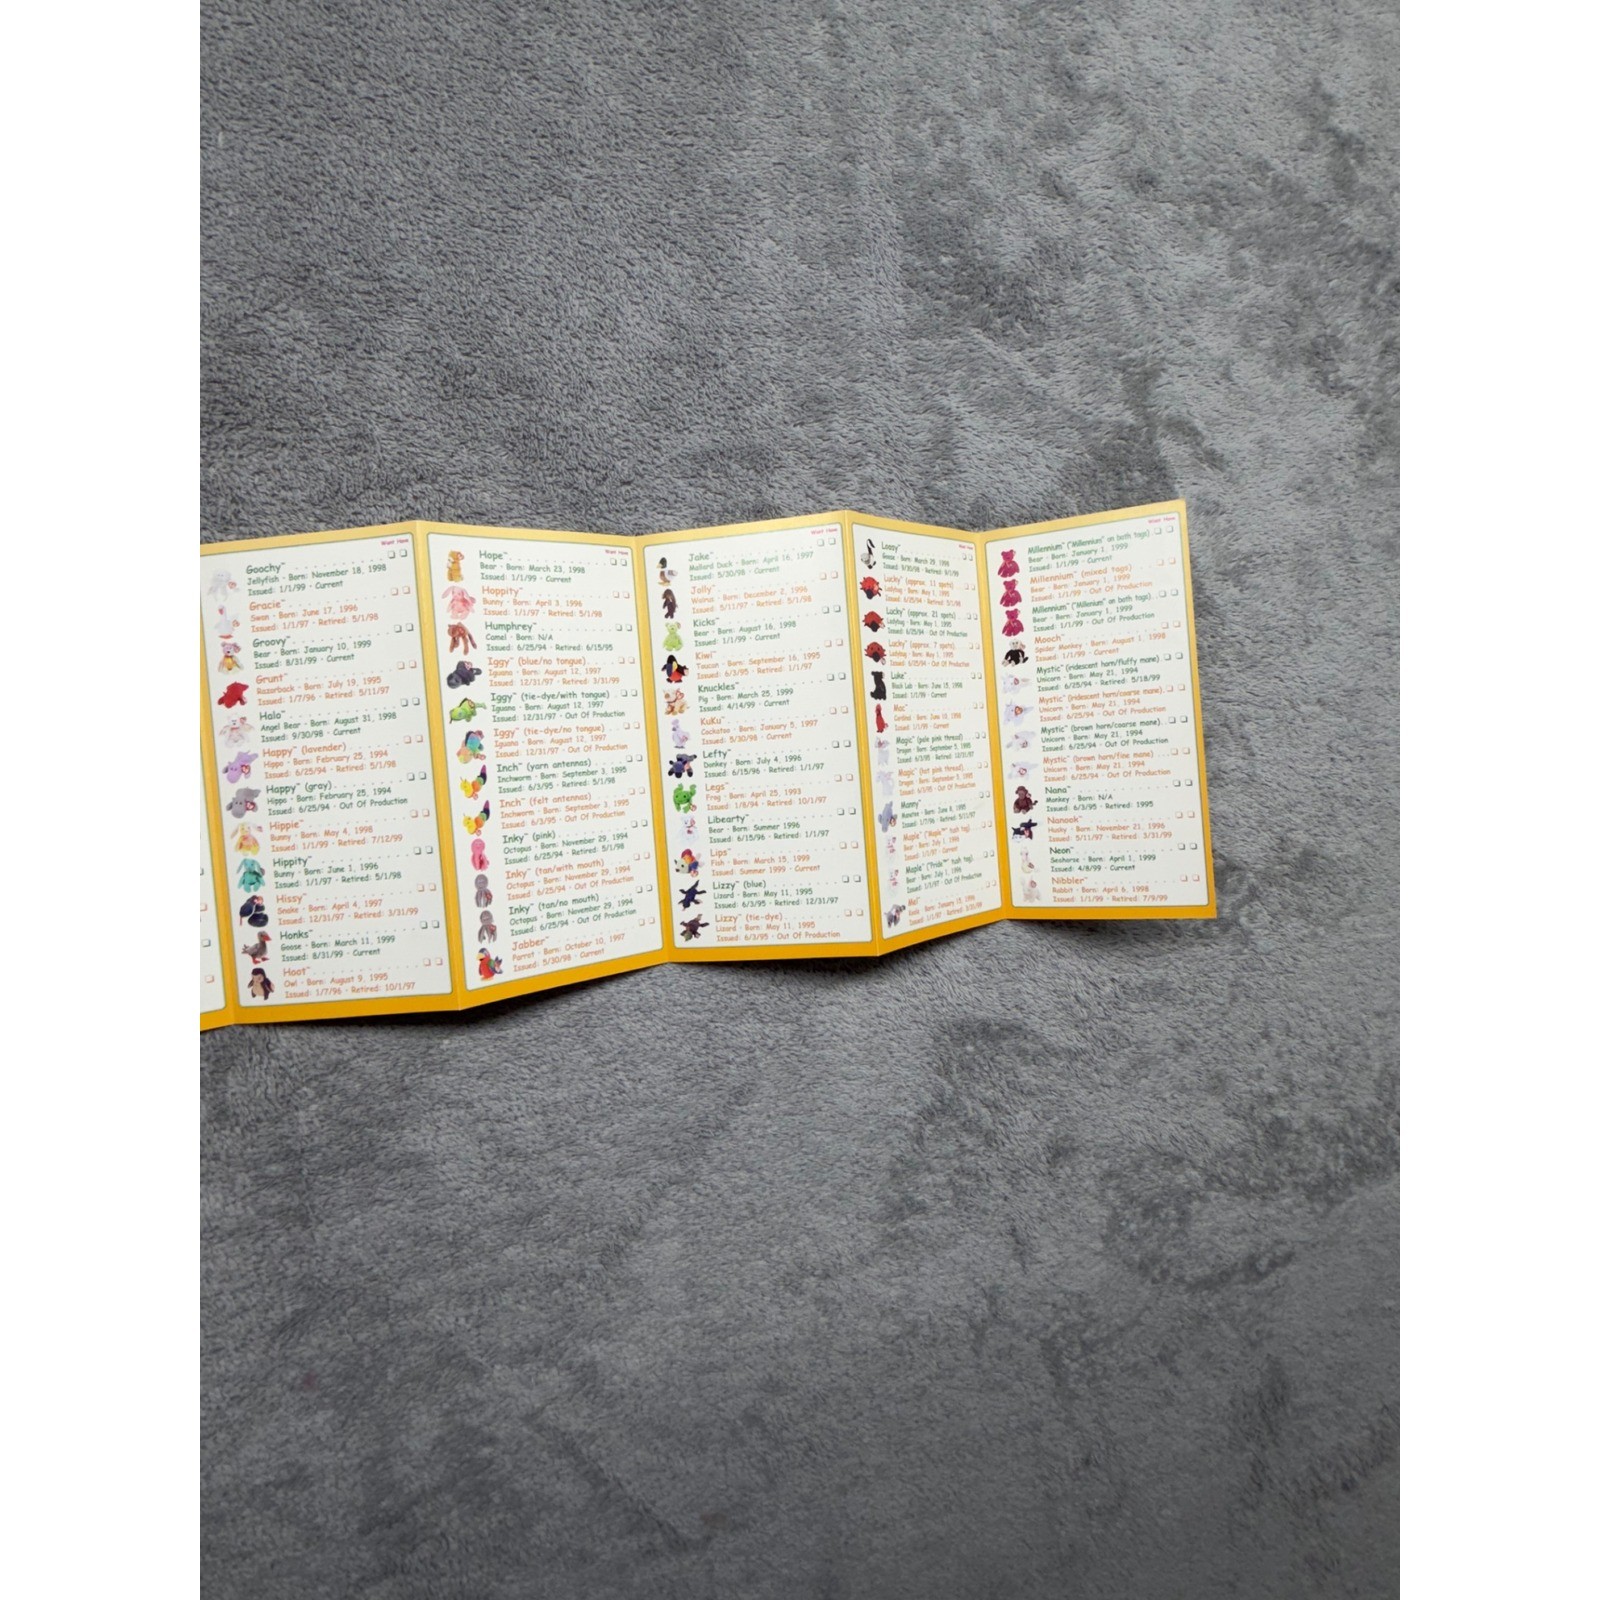 Want Have
Goochy™
Jellyfish - Born: November 18, 1998
Issued: 1/1/99 - Current
Gracie™
Swan - Born: June 17, 1996
Issued: 1/1/97 - Retired: 5/1/98
Groovy™
Bear - Born: January 10, 1999
Issued: 8/31/99 - Current
Grunt™
Razorback - Born: July 19, 1995
Issued: 1/7/96 - Retired: 5/11/97
Halo™
Angel Bear - Born: August 31, 1998
Issued: 9/30/98 - Current
Happy™ (lavender)
Hippo - Born: February 25, 1994
Issued: 6/25/94 - Retired: 5/1/98
Happy™ (gray)
Hippo - Born: February 25, 1994
Issued: 6/25/94 - Out Of Production
Hippie™
Bunny - Born: May 4, 1998
Issued: 1/1/99 - Retired: 7/12/99
Hippity™
Bunny - Born: June 1, 1996
Issued: 1/1/97 - Retired: 5/1/98
Hissy™
Snake - Born: April 4, 1997
Issued: 12/31/97 - Retired: 3/31/99
Honks™
Goose - Born: March 11, 1999
Issued: 8/31/99 - Current
Hoot™
Owl - Born: August 9, 1995
Issued: 1/7/96 - Retired: 10/1/97
Want Have
Hope™
Bear - Born: March 23, 1998
Issued: 1/1/99 - Current
Hoppity™
Bunny - Born: April 3, 1996
Issued: 1/1/97 - Retired: 5/1/98
Humphrey™
Camel - Born: N/A
Issued: 6/25/94 - Retired: 6/15/95
Iggy™ (blue/no tongue)
Iguana - Born: August 12, 1997
Issued: 12/31/97 - Retired: 3/31/99
Iggy™ (tie-dye/with tongue)
Iguana - Born: August 12, 1997
Issued: 12/31/97 - Out Of Production
Iggy™ (tie-dye/no tongue)
Iguana - Born: August 12, 1997
Issued: 12/31/97 - Out Of Production
Inch™ (yarn antennas)
Inchworm - Born: September 3, 1995
Issued: 6/3/95 - Retired: 5/1/98
Inch™ (felt antennas)
Inchworm - Born: September 3, 1995
Issued: 6/3/95 - Out Of Production
Inky™ (pink)
Octopus - Born: November 29, 1994
Issued: 6/25/94 - Retired: 5/1/98
Inky™ (tan/with mouth)
Octopus - Born: November 29, 1994
Issued: 6/25/94 - Out Of Production
Inky™ (tan/no mouth)
Octopus - Born: November 29, 1994
Issued: 6/25/94 - Out Of Production
Jabber™
Parrot - Born: October 10, 1997
Issued: 5/30/98 - Current
Want Have
Jake™
Mallard Duck - Born: April 16, 1997
Issued: 5/30/98 - Current
Jolly™
Walrus - Born: December 2, 1996
Issued: 5/11/97 - Retired: 5/1/98
Kicks™
Bear - Born: August 16, 1998
Issued: 1/1/99 - Current
Kiwi™
Toucan - Born: September 16, 1995
Issued: 6/3/95 - Retired: 1/1/97
Knuckles™
Pig - Born: March 25, 1999
Issued: 4/14/99 - Current
KuKu™
Cockatoo - Born: January 5, 1997
Issued: 5/30/98 - Current
Lefty™
Donkey - Born: July 4, 1996
Issued: 6/15/96 - Retired: 1/1/97
Legs™
Frog - Born: April 25, 1993
Issued: 1/8/94 - Retired: 10/1/97
Libearty™
Bear - Born: Summer 1996
Issued: 6/15/96 - Retired: 1/1/97
Lips™
Fish - Born: March 15, 1999
Issued: Summer 1999 - Current
Lizzy™ (blue)
Lizard - Born: May 11, 1995
Issued: 6/3/95 - Retired: 12/31/97
Lizzy™ (tie-dye)
Lizard - Born: May 11, 1995
Issued: 6/3/95 - Out Of Production
Want Have
Loosy™
Goose - Born: March 29, 1998
Issued: 9/30/98 - Retired: 9/1/99
Lucky™ (approx. 11 spots)
Ladybug - Born: May 1, 1995
Issued: 6/25/94 - Retired: 5/1/98
Lucky™ (approx. 21 spots)
Ladybug - Born: May 1, 1995
Issued: 6/25/94 - Out Of Production
Lucky™ (approx. 7 spots)
Ladybug - Born: May 1, 1995
Issued: 6/25/94 - Out Of Production
Luke™
Black Lab - Born: June 15, 1998
Issued: 1/1/99 - Current
Mac™
Cardinal - Born: June 10, 1998
Issued: 1/1/99 - Current
Magic™ (pale pink thread)
Dragon - Born: September 5, 1995
Issued: 6/3/95 - Retired: 12/31/97
Magic™ (hot pink thread)
Dragon - Born: September 5, 1995
Issued: 6/3/95 - Out Of Production
Manny™
Manatee - Born: June 8, 1995
Issued: 1/7/96 - Retired: 5/11/97
Maple™ ("Maple™" tush tag)
Bear - Born: July 1, 1996
Issued: 1/1/97 - Current
Maple™ ("Pride™" tush tag)
Bear - Born: July 1, 1996
Issued: 1/1/97 - Out Of Production
Mel™
Koala - Born: January 15, 1996
Issued: 1/1/97 - Retired: 3/31/99
Want Have
Millennium™ ("Millennium" on both tags)
Bear - Born: January 1, 1999
Issued: 1/1/99 - Current
Millennium™ (mixed tags)
Bear - Born: January 1, 1999
Issued: 1/1/99 - Out Of Production
Millennium™ ("Millenium" on both tags)
Bear - Born: January 1, 1999
Issued: 1/1/99 - Out Of Production
Mooch™
Spider Monkey - Born: August 1, 1998
Issued: 1/1/99 - Current
Mystic™ (iridescent horn/fluffy mane)
Unicorn - Born: May 21, 1994
Issued: 6/25/94 - Retired: 5/18/99
Mystic™ (iridescent horn/coarse mane)
Unicorn - Born: May 21, 1994
Issued: 6/25/94 - Out Of Production
Mystic™ (brown horn/coarse mane)
Unicorn - Born: May 21, 1994
Issued: 6/25/94 - Out Of Production
Mystic™ (brown horn/fine mane)
Unicorn - Born: May 21, 1994
Issued: 6/25/94 - Out Of Production
Nana™
Monkey - Born: N/A
Issued: 6/3/95 - Retired: 1995
Nanook™
Husky - Born: November 21, 1996
Issued: 5/11/97 - Retired: 3/31/99
Neon™
Seahorse - Born: April 1, 1999
Issued: 4/8/99 - Current
Nibbler™
Rabbit - Born: April 6, 1998
Issued: 1/1/99 - Retired: 7/9/99